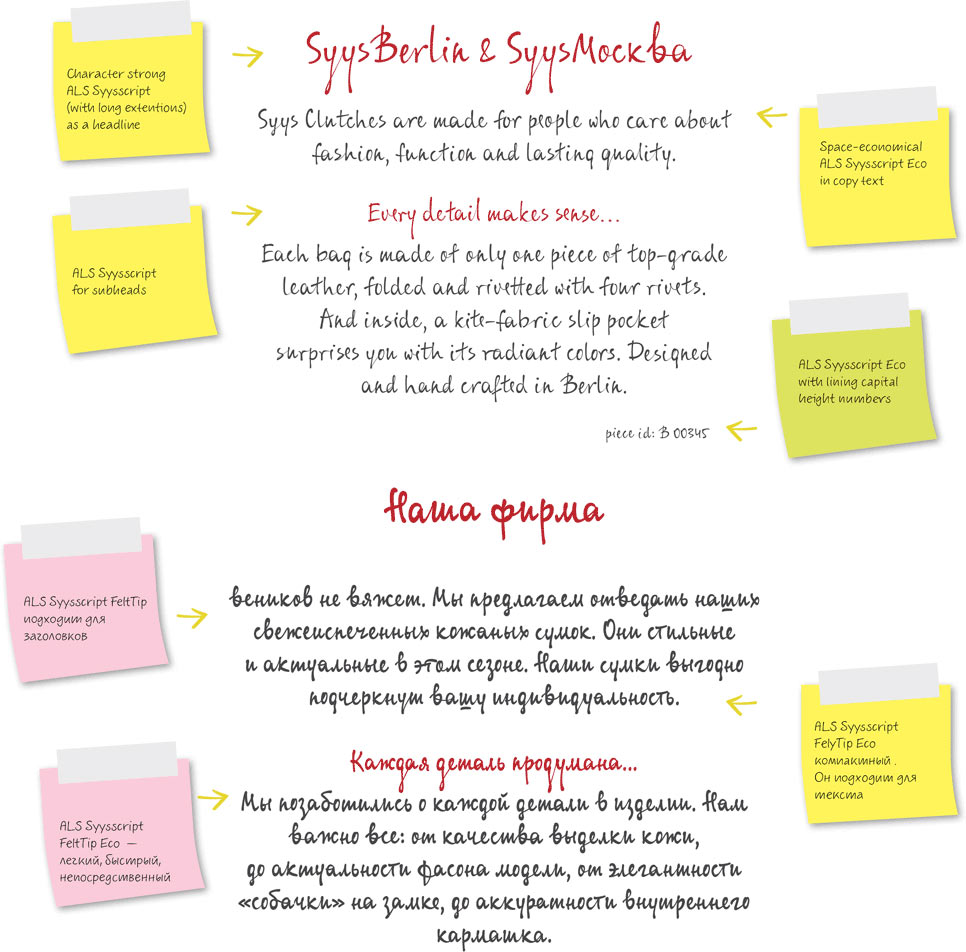 Character strong
ALS Syysscript
(with long extentions)
as a headline
SyysBerlin & SyysМосква
Syys Clutches are made for people who care about
fashion, function and lasting quality.
Space-economical
ALS Syysscript Eco
in copy text
ALS Syysscript
for subheads
Every detail makes sense...
Each bag is made of only one piece of top-grade
leather, folded and rivetted with four rivets.
And inside, a kite-fabric slip pocket
surprises you with its radiant colors. Designed
and hand crafted in Berlin.
ALS Syysscript Eco
with lining capital
height numbers
piece id: B 00345
Наша фирма
ALS Syysscript FeltTip
подходит для
заголовков
веников не вяжет. Мы предлагаем отведать наших
свежеиспеченных кожаных сумок. Они стильные
и актуальные в этом сезоне. Наши сумки выгодно
подчеркнут вашу индивидуальность.
ALS Syysscript
FelyTip Eco
компактный .
Он подходит для
текста
Каждая деталь продумана...
Мы позаботились о каждой детали в изделии. Нам
важно все: от качества выделки кожи,
до актуальности фасона модели, от элегантности
«собачки» на замке, до аккуратности внутреннего
кармашка.
ALS Syysscript
FeltTip Eco —
легкий, быстрый,
непосредственный